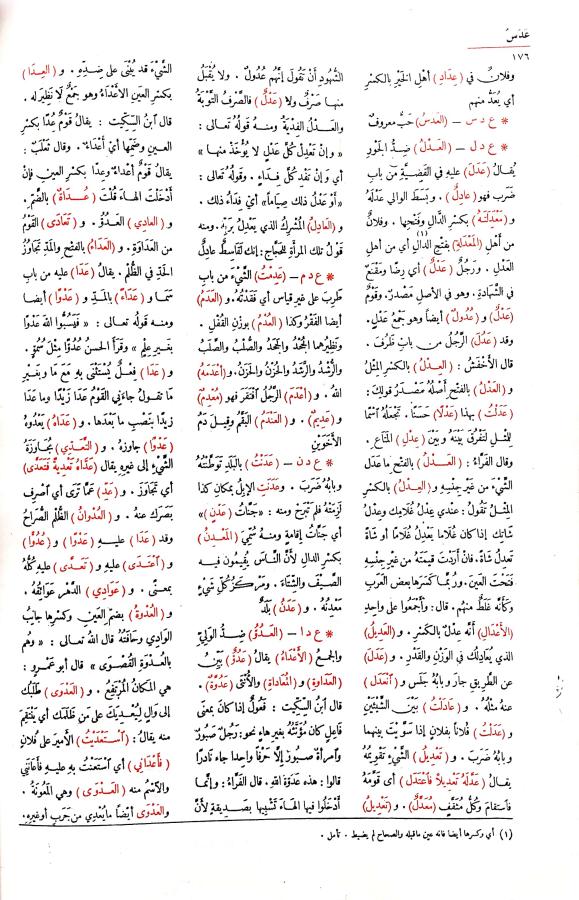 عَدَسٌ
١٧٦
وفلانٌ في (عِدَادِ) أهل الخَيْرِ بالكسرِ
أي يُعدُّ منهم
* ع د س - (العَدَسُ) حَبٌّ معروفٌ
* ع د ل - (العَدْلُ) ضِدُّ الجَوْرِ
يُقالُ (عَدَلَ) عليه في القَضِيَّةِ من بابِ
ضَرَب فهو (عادِلٌ) . وبَسَطَ الوالي عَدْلَهُ
و (مَعْدِلَتَهُ) بكسرِ الدَّالِ وفَتْحِها . وفلانٌ
من أهلِ (المَعْدَلَةِ) بفتح الدَّالِ (١) أي من أهلِ
العَدْلِ . ورَجُلٌ (عَدْلٌ) أي رِضًا ومَقْنَعٌ
في الشَّهادَةِ . وهو في الأصلِ مَصْدَرٌ. وقَوْمٌ
(عَدْلٌ) و (عُدُولٌ) أيضًا وهو جَمْعُ عَدْلٍ .
وقد (عَدُلَ) الرَّجُلُ من باب ظَرُفَ .
قال الأخْفَشُ : (العِدْلُ) بالكسرِ المِثْلُ
و (العَدْلُ) بالفتح أصْلُهُ مَصْدَرُ قولِكَ :
(عَدَلْتُ) بهذا (عَدْلًا) حَسَنًا . تَجْعَلُهُ ٱسْمًا
لِلمِثْلِ لتَفْرُقَ بَيْنَهُ وبَيْنَ (عِدْلِ) المَتاعِ .
وقال الفَرَّاءُ : (العَدْلُ) بالفتح ما عَدَلَ
الشَّيْءَ من غيرِ جِنْسِهِ و (العِدْلُ) بالكسرِ
المِثْلُ تَقُولُ : عندي عِدْلُ غُلامِكَ وعِدْلُ
شاتِكَ إذا كان غُلامًا يَعْدِلُ غُلامًا أو شاةً
تعدِلُ شاةً. فإنْ أرَدْتَ قيمَتَهُ من غيرِ جِنْسِهِ
فَتَحْتَ العَيْنَ. ورُبَّما كَسَرَها بعضُ العَرَبِ
وكأنَّه غَلَطٌ منهم . قال : وأجْمَعُوا على واحِدِ
(الأعْدالِ) أنَّه عِدْلٌ بالكسرِ . و (العَدِيلُ)
الذي يُعادِلُكَ في الوَزْنِ والقَدْرِ . و (عَدَلَ)
عن الطَّريقِ جارَ وبابُهُ جَلَسَ و (ٱنْعَدَلَ)
عنه مِثْلُهُ . و (عادَلْتُ) بَيْنَ الشَّيْئَيْنِ
و (عَدَلْتُ) فُلانًا بفلانٍ إذا سَوَّيْتَ بينهما
وبابُهُ ضَرَبَ . و (تَعْدِيلُ) الشَّيْءِ تَقْوِيمُهُ
يقالُ (عَدَّلَهُ تَعْدِيلًا فٱعْتَدَلَ) أي قَوَّمَهُ
فٱستقامَ وكُلُّ مُثَقَّفٍ (مُعَدَّلٌ) . و (تَعْدِيلُ)
الشُّهودِ أنْ تَقُولَ إنَّهم عُدُولٌ . ولا يُقْبَلُ
منها صَرْفٌ ولا (عَدْلٌ) فالصَّرْفُ التَّوْبَةُ
والعَدْلُ الفِدْيَةُ ومنه قولُهُ تعالى :
« وإن تَعْدِلْ كلَّ عَدْلٍ لا يُؤْخَذْ منها »
أي وإنْ تَفْدِ كلَّ فِداءٍ . وقولُهُ تعالى :
« أَوْ عَدْلُ ذلك صِيَامًا » أي فِداءُ ذلك .
و (العادِلُ) المُشْرِكُ الذي يَعْدِلُ بِرَبِّهِ. ومنه
قولُ تلك المرأةِ للحَجَّاجِ : إنك لَقاسِطٌ عادِلٌ
* ع د م - (عَدِمْتُ) الشَّيْءَ من بابِ
طَرِبَ على غيرِ قياسٍ أي فَقَدْتُهُ. و (العَدَمُ)
أيضا الفَقْرُ وكذا (العُدْمُ) بوزنِ القُفْلِ .
ونَظِيرُهما الجُحْدُ والجَحَدُ والصُّلْبُ والصَّلَبُ
والرُّشْدُ والرَّشَدُ والحُزْنُ والحَزَنُ. و (أعْدَمَهُ)
اللهُ . و (أعْدَمَ) الرَّجُلُ ٱفْتَقَرَ فهو (مُعْدِمٌ)
و (عَدِيمٌ) . و (العَنْدَمُ) البَقَّمُ وقيلَ دَمُ
الأَخَوَيْنِ
* ع د ن - (عَدَنْتُ) بالبَلَدِ تَوَطَّنْتُهُ
وبابُهُ ضَرَبَ . وعَدَنَتِ الإبِلُ بمكانِ كذا
لَزِمَتْهُ فلم تَبْرَحْ ومنه : «جَنَّاتُ (عَدْنٍ)»
أي جَنَّاتُ إقامةٍ ومنه سُمِّيَ (المَعْدِنُ)
بكسرِ الدالِ لأنَّ الناسَ يُقيمُون فيه
الصَّيْفَ والشِّتَاءَ . ومَرْكَزُ كلِّ شَيْءٍ
مَعْدِنُهُ . و (عَدَنُ) بَلَدٌ
* ع د ا - (العَدُوُّ) ضِدُّ الوَلِيِّ
والجمعُ (الأعْداءُ) يقالُ (عَدُوٌّ) بَيِّنُ
(العَداوةِ) و (المُعاداةِ) والأُنْثَى (عَدُوَّةٌ) .
قال ابنُ السِّكِّيتِ : فَعُولٌ إذا كان بمعنى
فاعِلٍ كان مُؤَنَّثُهُ بغيرِ هاءٍ نحو: رجلٌ صَبُورٌ
وٱمرأةٌ صبورٌ إلّا حَرْفًا واحدا جاء نادرًا
قالوا : هذه عَدُوَّةُ اللهِ . قال الفَرَّاءُ : وإنَّما
أدْخَلُوا فيها الهاءَ تَشْبِيها بصَديقةٍ لأنَّ
الشَّيْءَ قد يُبْنَى على ضِدِّهِ . و (العِدَا)
بكسرِ العينِ الأعْداءُ وهو جمعٌ لا نَظِيرَ له .
قال ٱبنُ السِّكِّيتِ : يقالُ قَوْمٌ عِدًا بكسرِ
العينِ وضَمِّها أيْ أعْداءٌ . وقال ثَعْلَبٌ :
يقالُ قَوْمٌ أعداءٌ وعِدًا بكسرِ العينِ فإن
أدْخَلْتَ الهاءَ قُلْتَ (عُداةٌ) بالضَّمِّ.
و (العادِي) العَدُوُّ . و (تَعادَى) القَوْمُ
من العَداوَةِ . و (العَدَاءُ) بالفتح والمَدِّ تَجاوُزُ
الحَدِّ في الظُّلْمِ . يقالُ (عَدَا) عليه من بابِ
سَمَا و (عَدَاءً) بالمَدِّ و (عَدْوًا) أيضا
ومنه قوله تعالى : « فَيَسُبُّوا اللهَ عَدْوًا
بغَيرِ عِلْمٍ » وقَرَأَ الحسنُ عُدُوًّا مثلَ سُمُوٍّ .
و (عَدَا) فِعْلٌ يُسْتَثْنَى به مَعَ ما وبغَيرِ
ما تقولُ جاءَني القَوْمُ عَدَا زَيْدًا وما عَدَا
زيدًا بنَصْبِ ما بَعْدَها . و (عَدَاهُ) يَعْدُوهُ
(عَدْوًا) جاوزه . و (التَّعَدِّي) مُجاوَزَةُ
الشَّيْءِ إلى غيرِهِ يقالُ (عَدَّاهُ تَعْدِيةً فتَعَدَّى)
أي تَجاوَزَ . و (عَدِّ) عَمَّا تَرَى أي ٱصْرِفْ
بَصَرَكَ عنه . و (العُدْوانُ) الظُّلْمُ الصُّراحُ
وقد (عَدَا) عليه (عَدْوًا) و (عُدُوًّا)
و (ٱعْتَدَى) عليه و (تَعَدَّى) عليه كُلُّهُ
بمعنًى . و (عَوادِي) الدَّهْرِ عَوائِقُهُ .
و (العُدْوةُ) بضمِّ العينِ وكسرِها جانِبُ
الوادي وحافَتُهُ قال اللهُ تعالى : « وهُم
بالعُدْوَةِ القُصْوَى » قال أبو عَمرٍو :
هي المكانُ المُرْتَفِعُ . و (العَدْوَى) طَلَبُكَ
إلى والٍ لِيُعْدِيَكَ على مَن ظَلَمَكَ أي يَنْتَقِمَ
منه يقالُ : (ٱسْتَعْدَيْتُ) الأميرَ على فُلانٍ
(فأَعْدَاني) أي ٱسْتَعَنْتُ به عليه فأعانَنِي
والٱسمُ منه (العَدْوَى) وهي المَعُونَةُ .
و(العَدْوَى) أيضًا ما يُعْدِي من جَرَبٍ أو غيرِهِ.
(١) أي وكسرها أيضا فانه عين ماقبله والصحاح لم يضبط . تأمل .